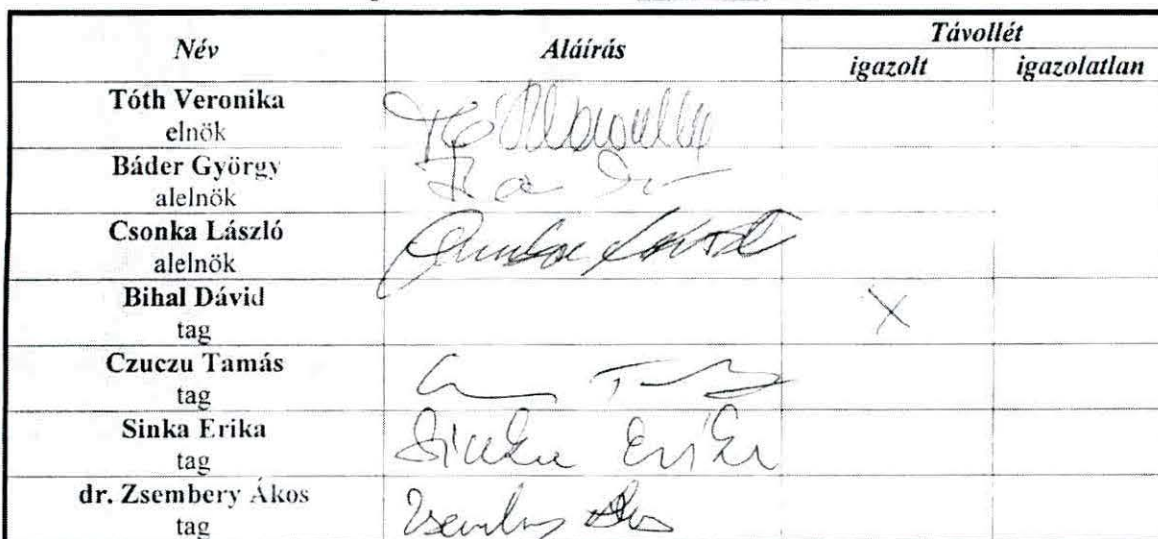 Név Aláírás Távollét
igazolt igazolatlan
Tóth Veronika
elnök
Báder György
alelnök
Csonka László
alelnök
Bihal Dávid
tag
X
Czuczu Tamás
tag
Sinka Erika
tag
Sinka Erika
dr. Zsembery Ákos
tag